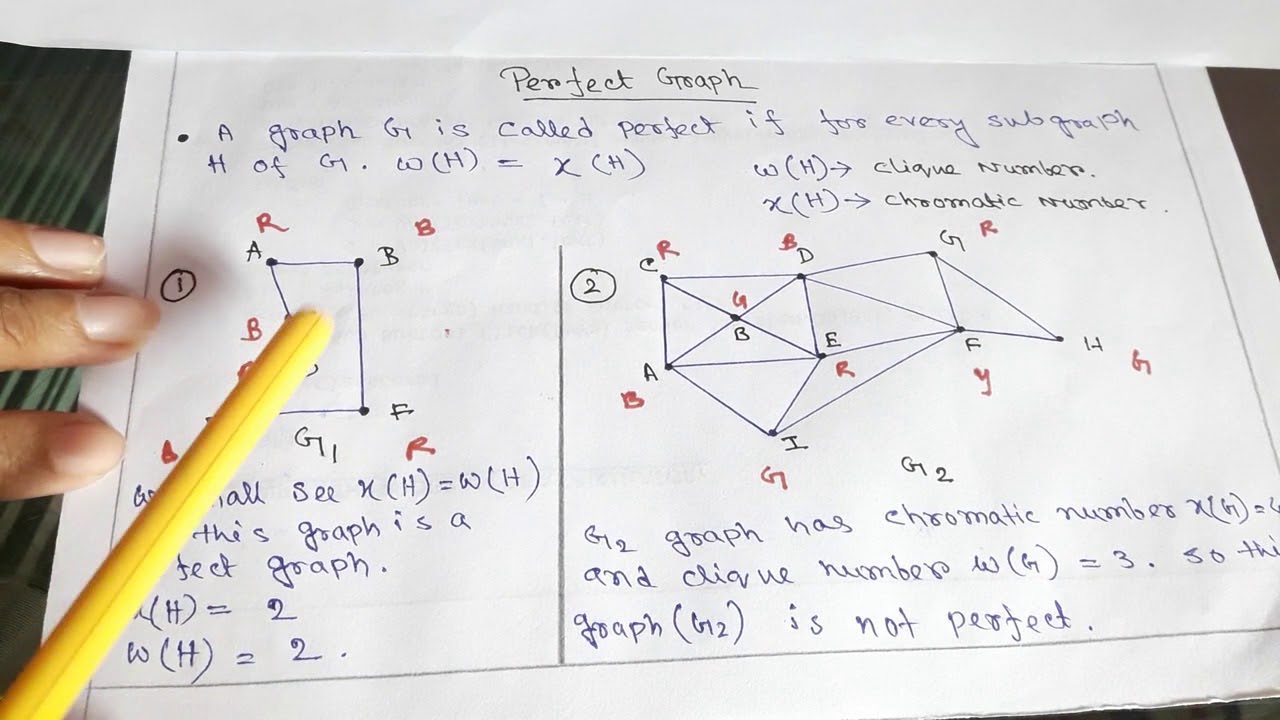 Perfect Graph
• A graph G is called perfect if for every subgraph
H of G. ω(H) = χ(H)
ω(H)→ clique Number.
χ(H)→ chromatic Number.
①
R
B
A
B
B
F
G1
R
shall see χ(H)=ω(H)
this graph is a
fect graph.
χ(H)= 2
ω(H) = 2.
②
C R
B
D
G R
G
B
E
R
F
y
H
G
A
B
I
G
G2
G2 graph has chromatic number χ(G)=
and clique number ω(G) = 3. so thi
graph (G2) is not perfect.